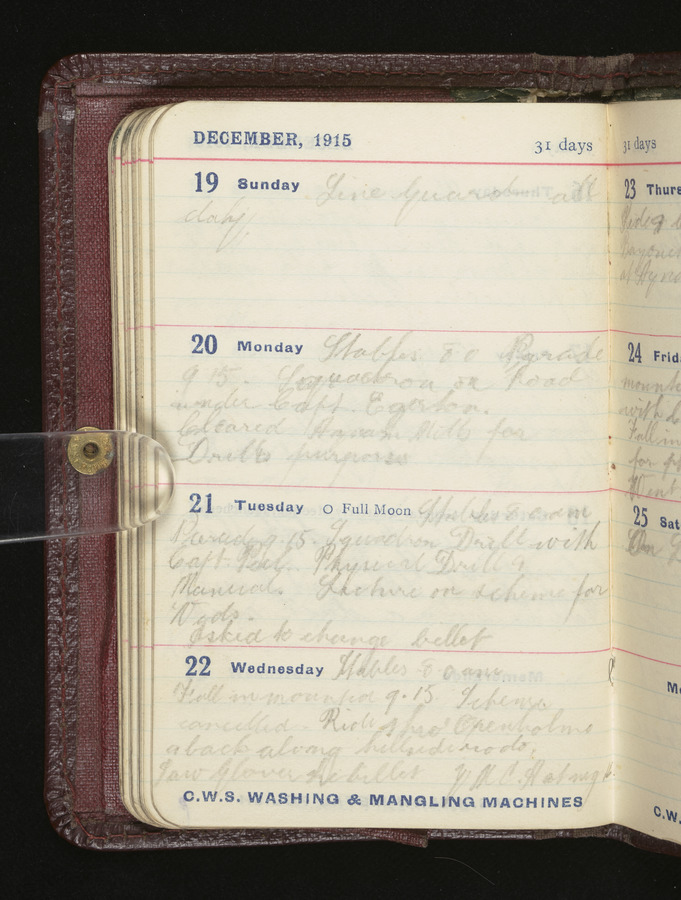 DECEMBER, 1915 31 days
19 Sunday Line Guard all
day.
20 Monday Stables 8 0 Parade
9 15. Squadron on Road
under Capt. Egerton.
Cleared Aynam Mills for
Drills purposes
21 Tuesday O Full Moon Stables 8 0 am
Parade 9.15. Squadron Drill with
Capt Peel. Physical Drill &
Manual. Lecture on scheme for
Weds.
Asked to change billet
22 Wednesday Stables 8 0 am
Fall in mounted 9.15 Scheme
cancelled. Ride thro'
& back along hillside roads.
Saw Glover re billet Y M C A at night
C.W.S. WASHING & MANGLING MACHINES
31 days
23 Thurs
24 Frid
mount
with
Fall in
for
Went
25 Sat
On
C.W.